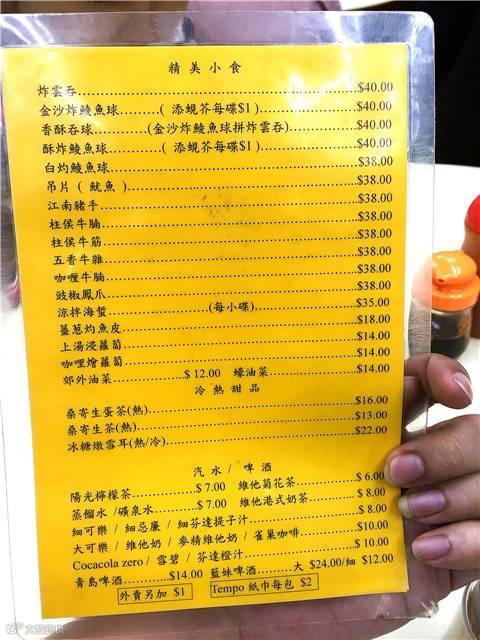 精美小食
炸雲吞 $40.00
金沙炸鯪魚球 ( 添蜆芥每碟$1 ) $40.00
香酥吞球 (金沙炸鯪魚球拼炸雲吞) $40.00
酥炸鯪魚球 ( 添蜆芥每碟$1 ) $40.00
白灼鯪魚球 $38.00
吊片 ( 魷魚 ) $38.00
江南豬手 $38.00
柱侯牛腩 $38.00
柱侯牛筋 $38.00
五香牛雜 $38.00
咖喱牛腩 $38.00
豉椒鳳爪 $38.00
涼拌海蜇 (每小碟) $35.00
薑葱灼魚皮 $18.00
上湯浸蘿蔔 $14.00
咖喱燴蘿蔔 $14.00
郊外油菜 $ 12.00 蠔油菜 $14.00
冷熱甜品
桑寄生蛋茶(熱) $16.00
桑寄生茶(熱) $13.00
冰糖燉雪耳(熱/冷) $22.00
汽水 / 啤酒
陽光檸檬茶 $ 7.00 維他菊花茶 $ 6.00
蒸餾水 /礦泉水 $ 7.00 維他港式奶茶 $ 8.00
細可樂 / 細忌廉 / 細芬達提子汁 $ 8.00
大可樂 / 維他奶 / 麥精維他奶 / 雀巢咖啡 $10.00
Cocacola zero / 雪碧 / 芬達橙汁 $ 10.00
青島啤酒 $14.00 藍妹啤酒 大 $24.00/細 $12.00
外賣另加 $1 Tempo 紙巾每包 $2
大众点评